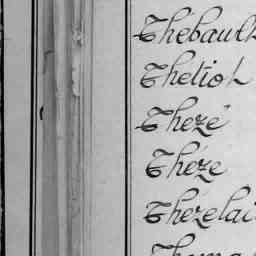 Thebault
Thetiot
Thezé
Théze
Thézelai
Thoma